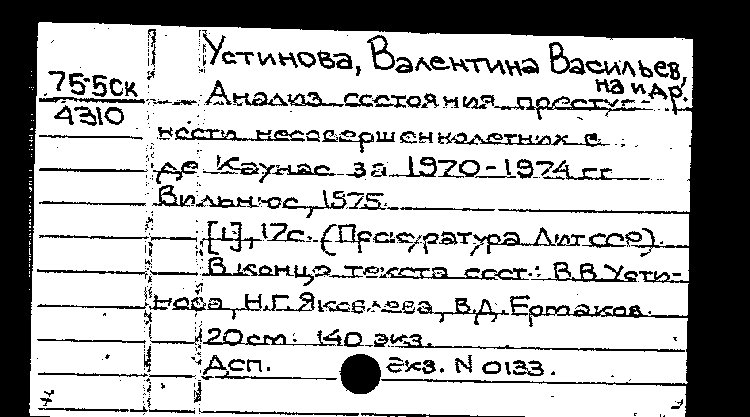 Устинова, Валентина Васильев,
на и др.
75-5ск
4310
Анализ состояния преступ-
ности несовершеннолетних в
де Каунас за 1970-1974 гг
Вильнюс, 1975.
[1], 17с. (Прокуратура Лит ССР).
В конце текста сост.: В.В. Усти-
нова, Н.Г. Яковлева, В.Д. Ермаков.
20 см. 140 экз.
Дсп. экз. N 0133.